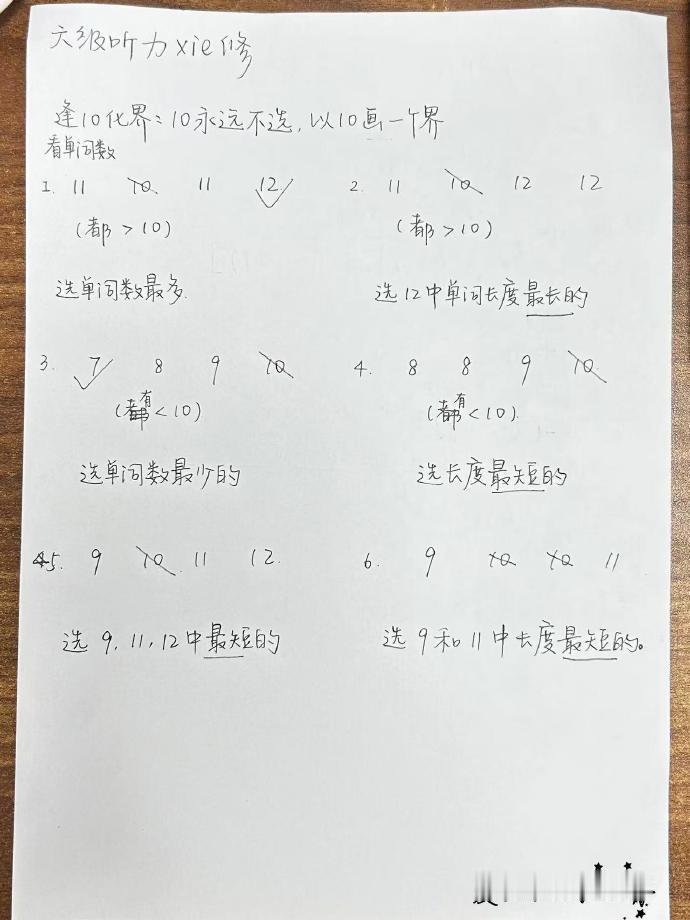 六级听力xie修
逢10化界：10永远不选，以10画一个界
看单词数
1. 11 10 11 12
(都 > 10)
选单词数最多.
2. 11 10 12 12
(都 > 10)
选12中单词长度最长的
3. 7 8 9 10
(有 < 10)
选单词数最少的
4. 8 8 9 10
(有 < 10)
选长度最短的
5. 9 10 11 12.
选 9, 11, 12中最短的
6. 9 10 10 11
选 9和11中长度最短的。